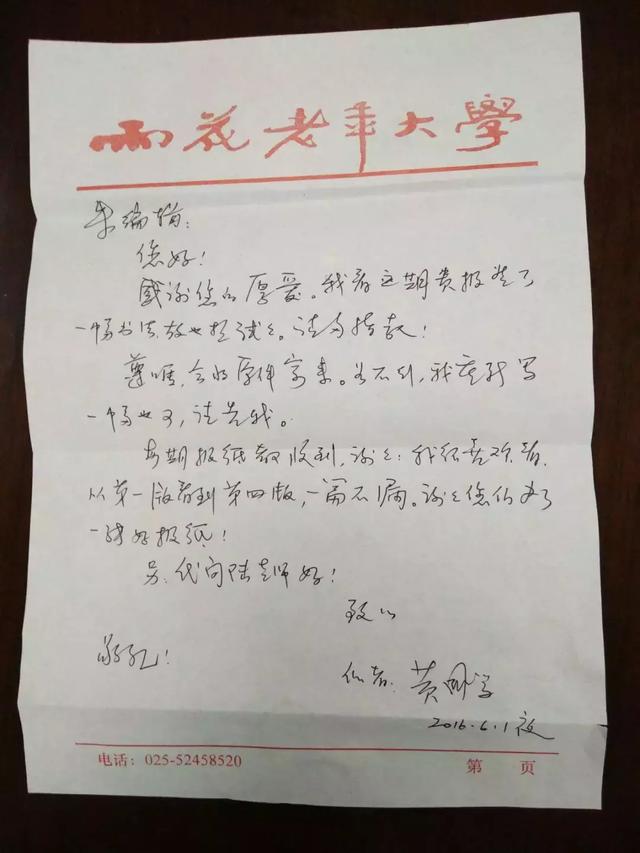 雨花老年大學
朱编辑：
您好！
感谢您的厚爱。我看这期贵报发了
一幅书法，故也想试试。请多指教！
尊嘱，会的原件寄来。若不到，我重新写
一幅也可，请告我。
每期报纸都收到，谢谢！我很喜欢看，
从第一版看到第四版，一篇不漏。谢谢您们办了
一张好报纸！
另：代向陆老师好！
致以
敬礼！
作者：黄
2016.6.1夜
电话：025-52458520
第 页